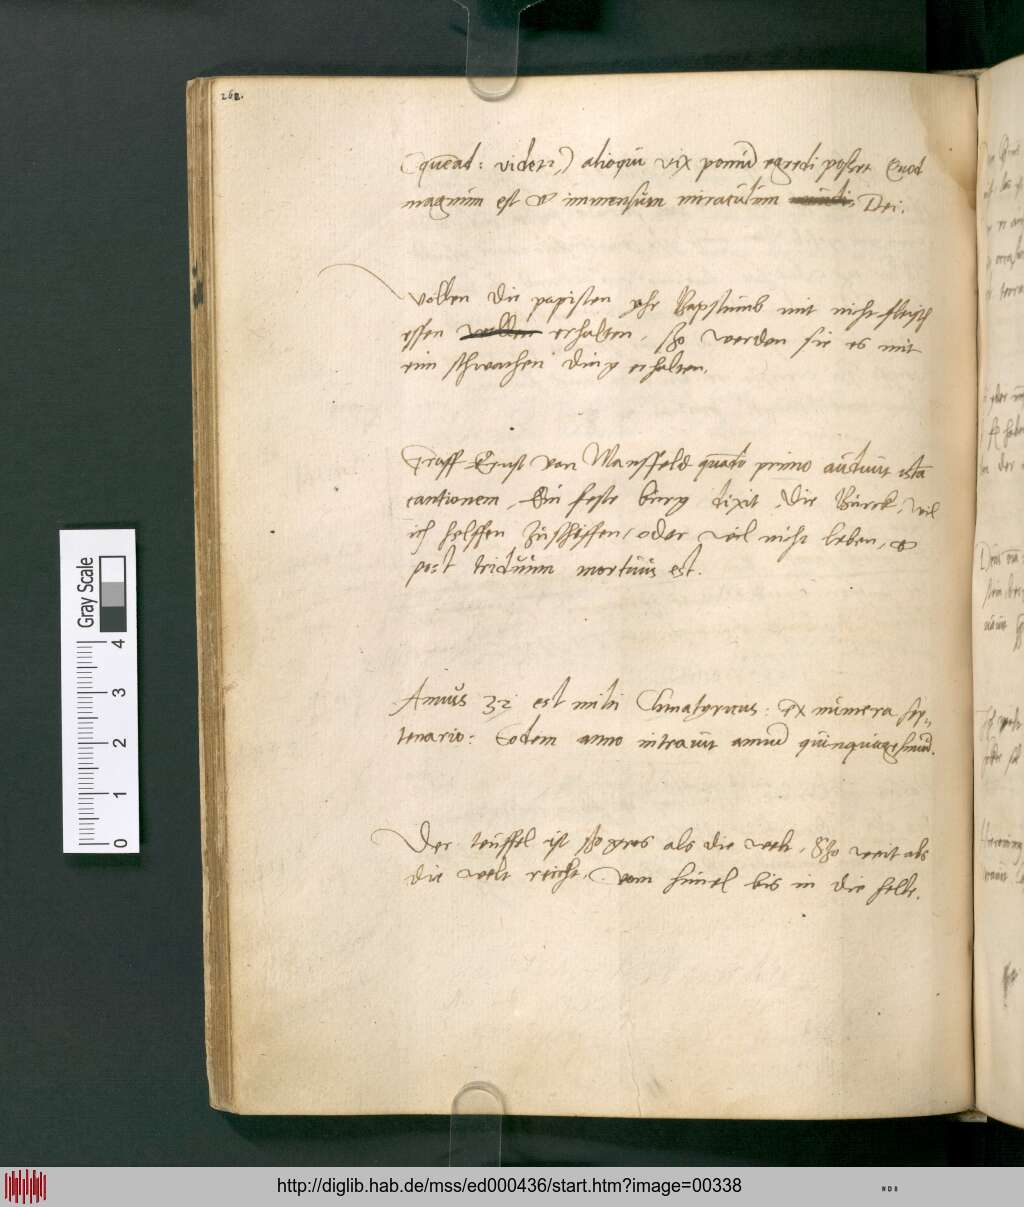 262.
(queat: videri,) alioqui vix pomũ egredi posset Quod
magnum est & immensum miraculum mundi, Dei.
Wollen die papisten yhr Bapstumb mit nicht fleisch
essen wollen erhalten, sso werden sie es mit
eim schwachen ding erhalten.
Graff Ernst von Mansfeld quãdo primo audiuit istã
cantionem, Ein feste burg dixit, Die Burck, wil
ich helffen zuschissen, oder wil nicht leben, &
post triduum mortuus est.
Annus 32 est mihi Climatericus: Ex numero sep-
tenario: Eodem anno intrauit annũ quinquagesimũ.
Der teuffel ist sso gros als die welt, Sso weit als
die welt reicht, Vom himel bis in die helle.
Gray Scale
4
3
2
1
0
http://diglib.hab.de/mss/ed000436/start.htm?image=00338